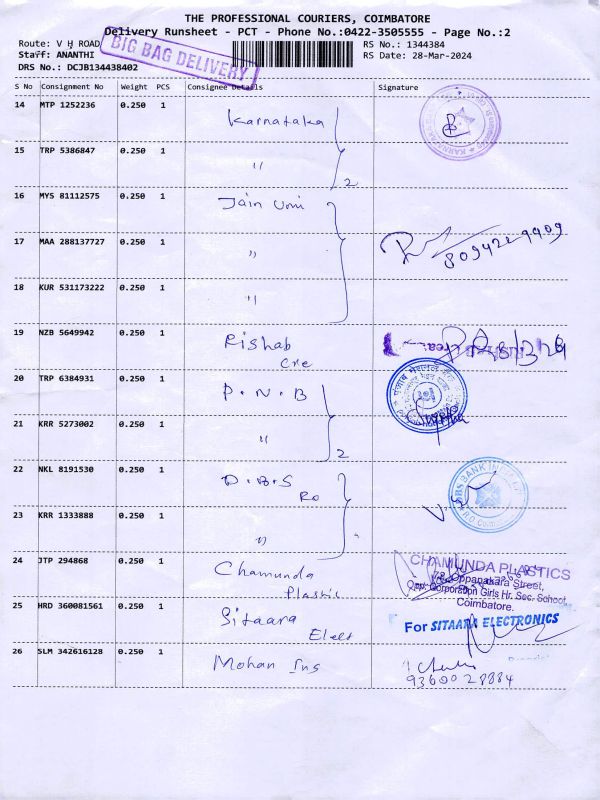 THE PROFESSIONAL COURIERS, COIMBATORE
Delivery Runsheet - PCT - Phone No.:0422-3505555 - Page No.:2
Route: V H ROAD
RS No.: 1344384
Staff: ANANTHI
RS Date: 28-Mar-2024
DRS No.: DCJB134438402
BIG BAG DELIVERY
S No Consignment No Weight PCS Consignee Details Signature
14 MTP 1252236 0.250 1 Karnataka
15 TRP 5386847 0.250 1 〃
2
16 MYS 81112575 0.250 1 Jain Uni
17 MAA 288137727 0.250 1 〃
18 KUR 531173222 0.250 1 〃
19 NZB 5649942 0.250 1 Rishab
Cre
20 TRP 6384931 0.250 1 P.N.B
21 KRR 5273002 0.250 1 〃
2
22 NKL 8191530 0.250 1 D.B.S
Ro
DBS BANK
23 KRR 1333888 0.250 1 〃
24 JTP 294868 0.250 1 Chamunda
Plastic
CHAMUNDA PLASTICS
Oppanakara Street,
Opp. Corporation Girls Hr. Sec. School,
Coimbatore.
25 HRD 360081561 0.250 1 Sitaara
Elect
For SITAARA ELECTRONICS
26 SLM 342616128 0.250 1 Mohan Ins
9360028884